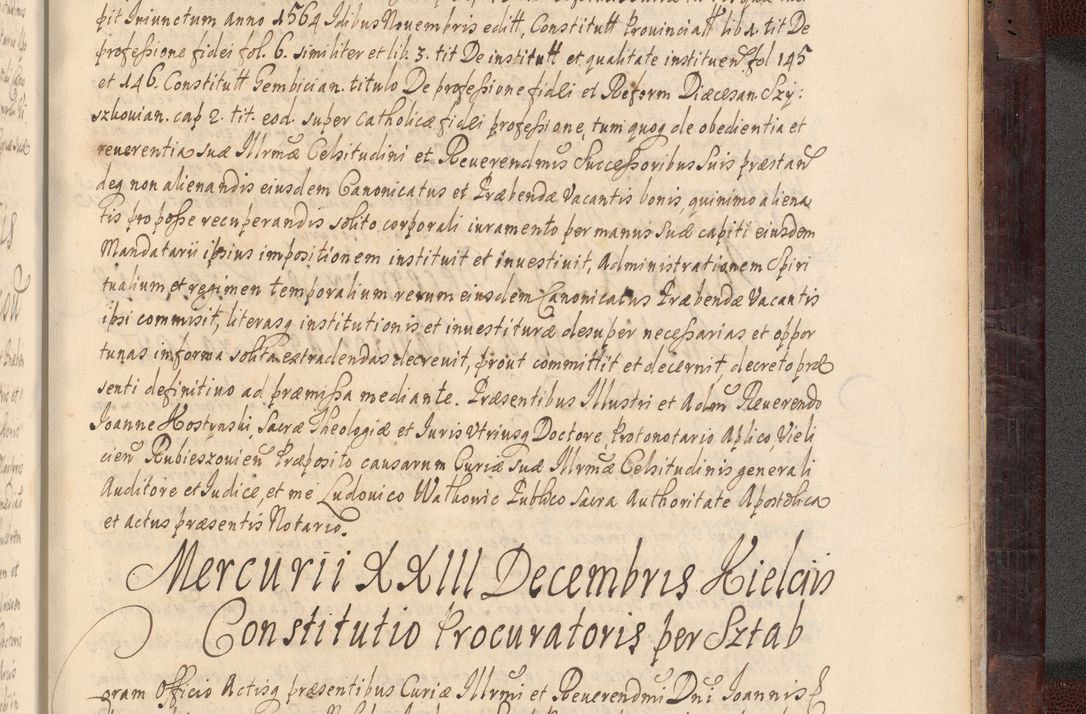 pit Iniunctum anno 1564 Idibus Novembris editt, Constitutt Provinciatt lib 1. tit De
professione fidei fol. 6. similiter et lib. 3. tit De institutt et qualitate instituen fol 145
et 146. Constitutt Gembician. titulo De professione fidei et Reform Diæcesan. Szy:
szkovian. cap 2. tit. eod. super Catholicæ fidei professione, tum quoq de obedientia et
reverentia suæ Illrmæ Celsitudini et Reverendmis Successoribus suis præstan
deq non alienandis eiusdem Canonicatus et Præbendæ vacantis bonis, quinimo aliena
tis pro posse recuperandis solito corporali iuramento per manus suæ capiti eiusdem
Mandatarii ipsius impositionem instituit et investiuit, Administrationem Spiri
tualium et regimen temporalium rerum eiusdem Canonicatus Præbendæ vacantis
ipsi commisit, literasq institutionis et investituræ desuper necessarias et oppor
tunas in forma solita extradendas decrevit, prout committit et decernit decreto præ
senti definitivo ad præmissa mediante. Præsentibus Illustri et Adm Reverendo
Ioanne Hostynski, Sacræ Theologiæ et Iuris Utriusq Doctore, Protonotario Aplico, Vieli
cien Rubieszovien Præposito causarum Curiæ suæ Illrmæ Celsitudinis generali
Auditore et Iudice, et me Ludovico Wathowic Publico Sacra Authoritate Apostolica
et actus præsentis Notario.
Mercurii XXIII Decembris Kielciis
Constitutio Procuratoris per Sztab
gram Officio Actisq præsentibus Curiæ Illrmi et Reverendmi Dni Ioannis